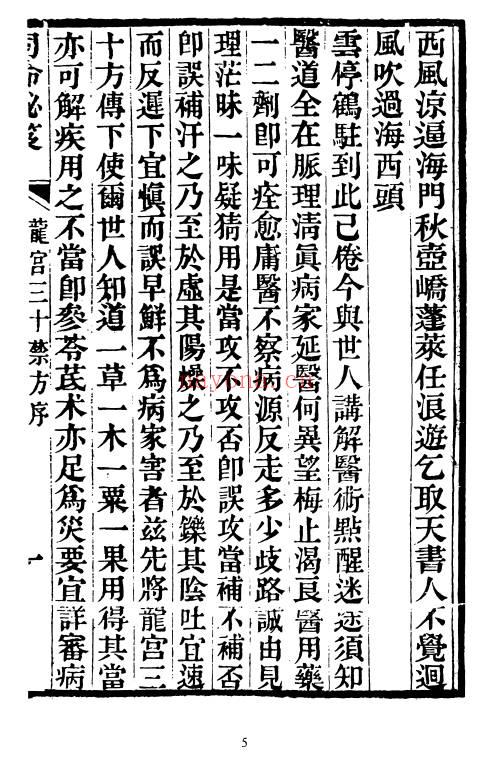 西風涼逼海門秋壺嶠蓬萊任浪遊乞取天書人不覺迴
風吹過海西頭
雲停鶴駐到此已倦今與世人講解醫術點醒迷途須知
醫道全在脈理淸眞病家延醫何異望梅止渴良醫用藥
一二劑卽可痊愈庸醫不察病源反走多少歧路誠由見
理茫昧一味疑猜用是當攻不攻否卽誤攻當補不補否
卽誤補汗之乃至於虛其陽燥之乃至於鑠其陰吐宜速
而反遲下宜愼而誤早鮮不爲病家害者茲先將龍宮三
十方傳下使爾世人知道一草一木一粟一果用得其當
亦可解疾用之不當卽參苓芪朮亦足爲災要宜詳審病
龍宮三十禁方序
一
5